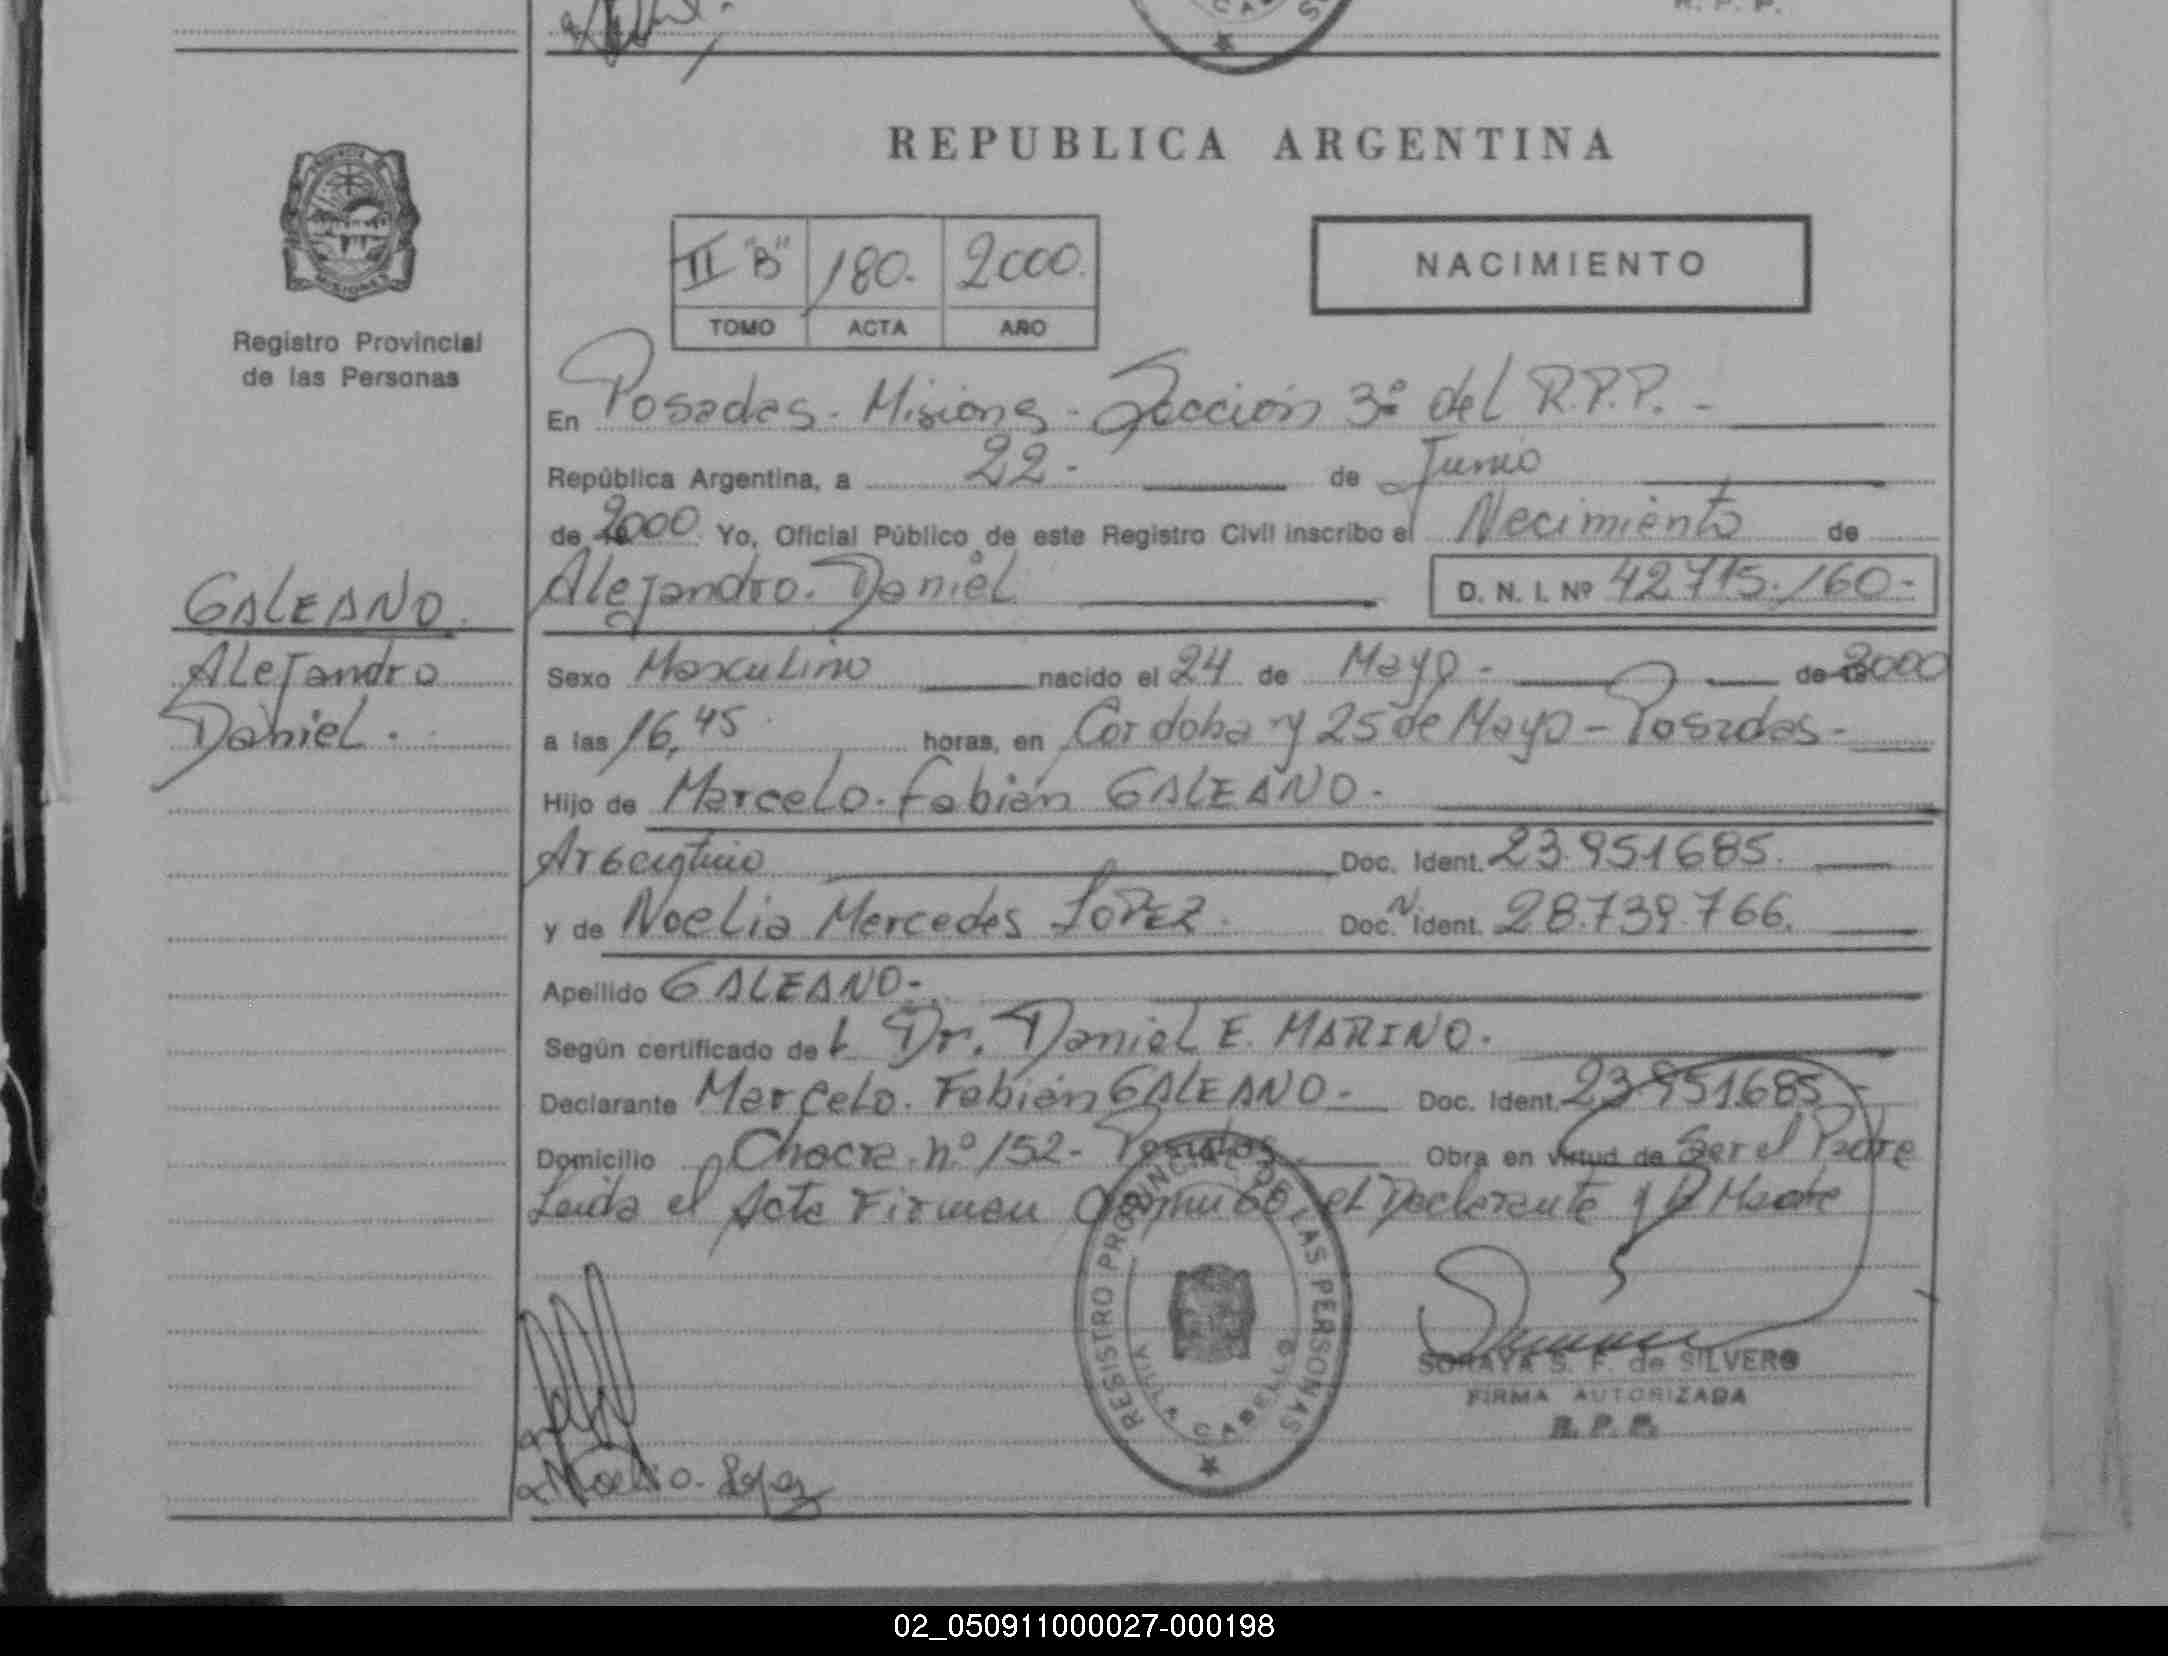 R. P. P.
REPUBLICA ARGENTINA
II "B" 180. 2000.
TOMO ACTA AÑO
NACIMIENTO
PROVINCIA DE MISIONES
Registro Provincial
de las Personas
En Posadas - Misions - Sección 3ª del R.P.P. -
República Argentina, a 22 - de Junio
de 2000 Yo, Oficial Público de este Registro Civil inscribo el Nacimiento de
Alejandro. Daniel D. N. I. Nº 42.775.160-
GALEANO.
Alejandro
Daniel.
Sexo Masculino nacido el 24 de Mayo - de 2000
a las 16,45 horas, en Cordoba y 25 de Mayo - Posadas -
Hijo de Marcelo. Fabián GALEANO -
Argentino Doc. Ident. 23.951685.
y de Noelia Mercedes LOPEZ - Doc. Ident. 28.739.766.
Apellido GALEANO -
Según certificado de Dr. Daniel E. MARINO.
Declarante Marcelo. Fabián GALEANO - Doc. Ident. 23.951.685 -
Domicilio Chacra. nº 152 - Posadas Obra en virtud de Ser el Padre
Leida el Acta Firman el Declarante y la Madre
REGISTRO PROVINCIAL DE LAS PERSONAS
VILLA CABELLO
SORAYA S. F. de SILVERO
FIRMA AUTORIZADA
R. P. P.
Noelia. Lopez
02_050911000027-000198